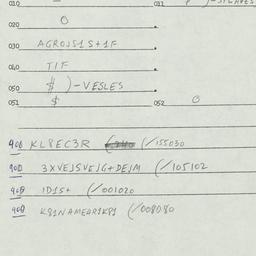 010 031
020 O
030 AGROJS1S+1F
040 TIF
050 $ )-VESLES
051 $ 052 O
900 KL8EC3R (/155030
900 3XVEJSVEJG+DEJM (/105102
900 ID1S+ (/001020
900 K81NAMEAR1K81 (/008080